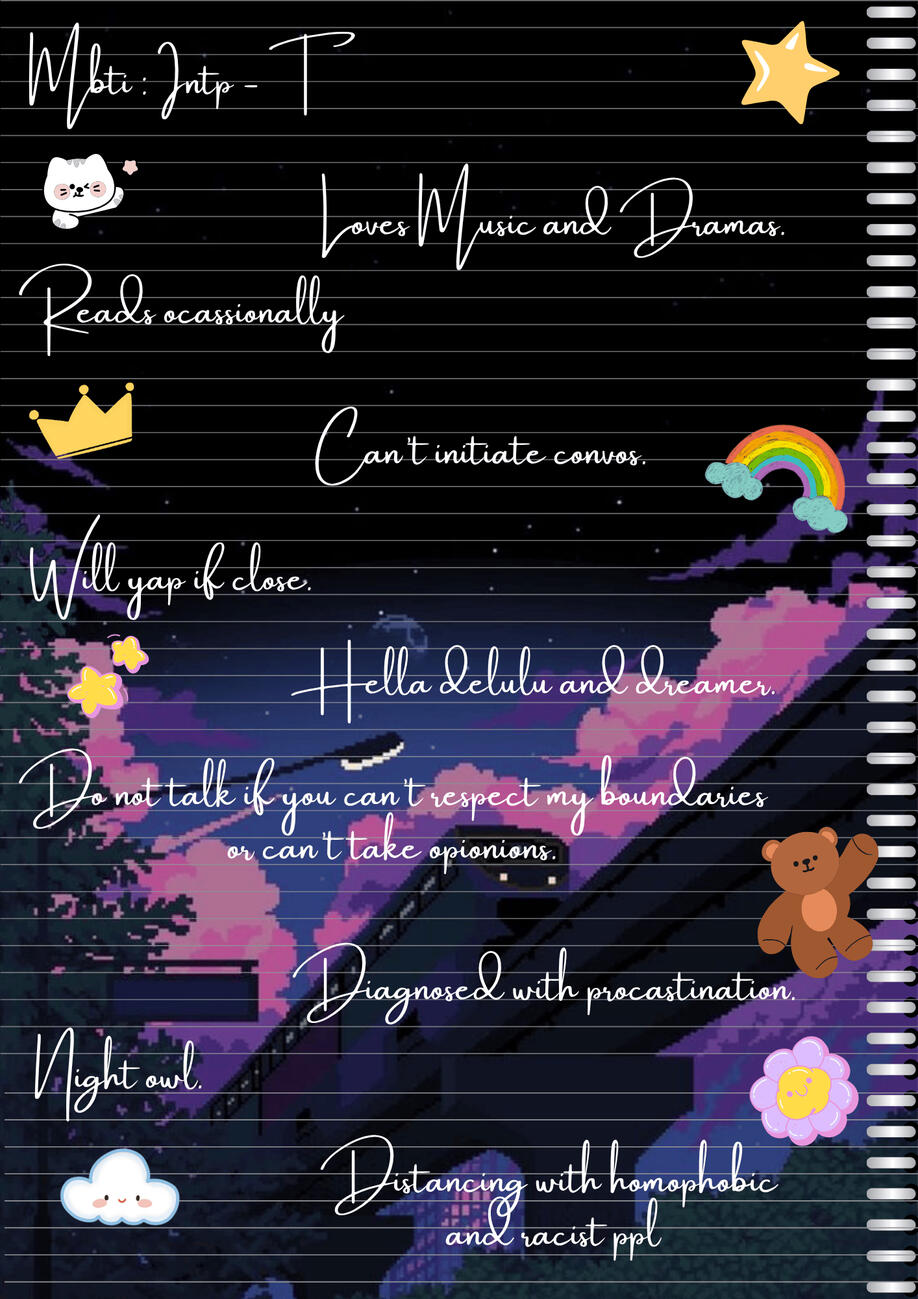 Mbti : Intp - T
Loves Music and Dramas.
Reads ocassionally
Can't initiate convos.
Will yap if close.
Hella delulu and dreamer.
Do not talk if you can't respect my boundaries
or can't take opionions.
Diagnosed with procastination.
Night owl.
Distancing with homophobic
and racist ppl